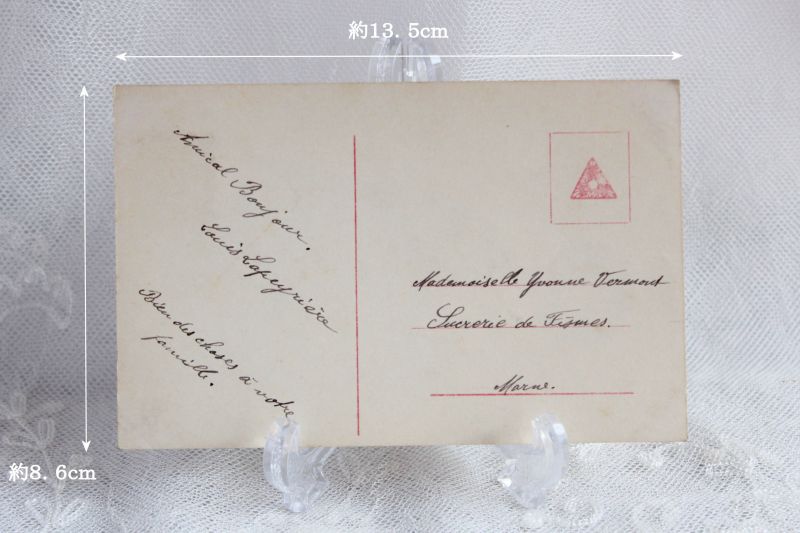 約13.5cm
約8.6cm
Amical Bonjour.
Louis Lapeyrière
Bien des choses à votre
famille.
Mademoiselle Yvonne Vermont
Sucrerie de Fismes.
Marne.